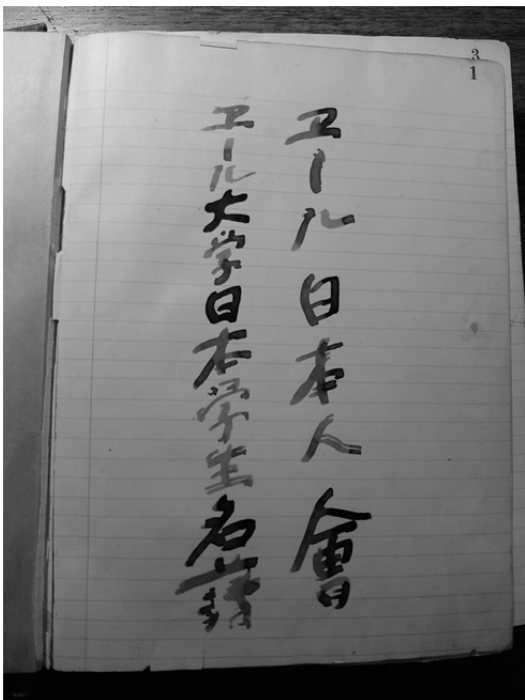 3
1
ヱール日本人會
ヱール大学日本学生名簿